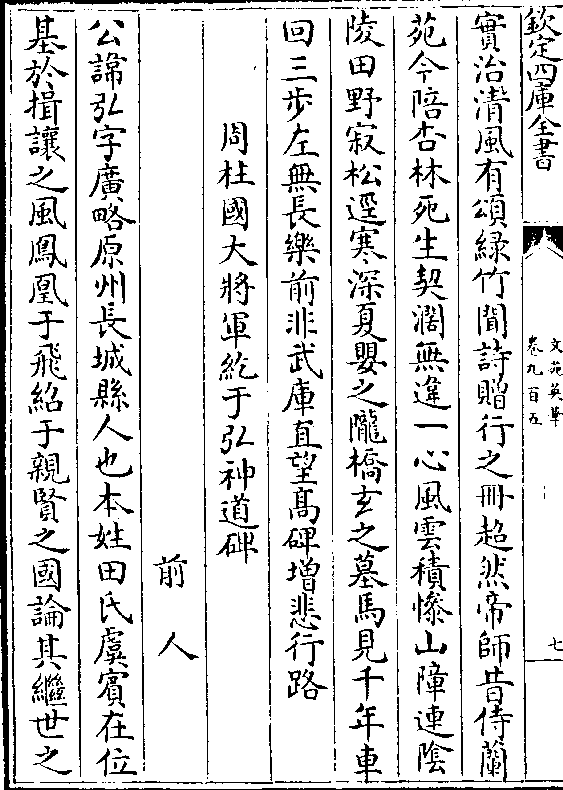 欽定四庫全書
文苑英華
卷九百五
七
實治清風有頌綠竹聞詩贈行之冊超然帝師昔侍蘭
苑今陪杏林死生契濶無違一心風雲積慘山障連陰
陵田野寂松逕寒深夏嬰之隴橋玄之墓馬見千年車
回三步左無長樂前非武庫直望髙碑增悲行路
周柱國大將軍紇于弘神道碑
前人
公諱弘字廣略原州長城縣人也本姓田氏虞賓在位
基於揖讓之風鳳凰于飛紹于親賢之國論其繼世之